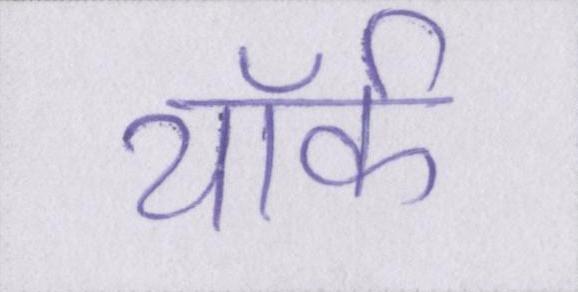 यॉर्क